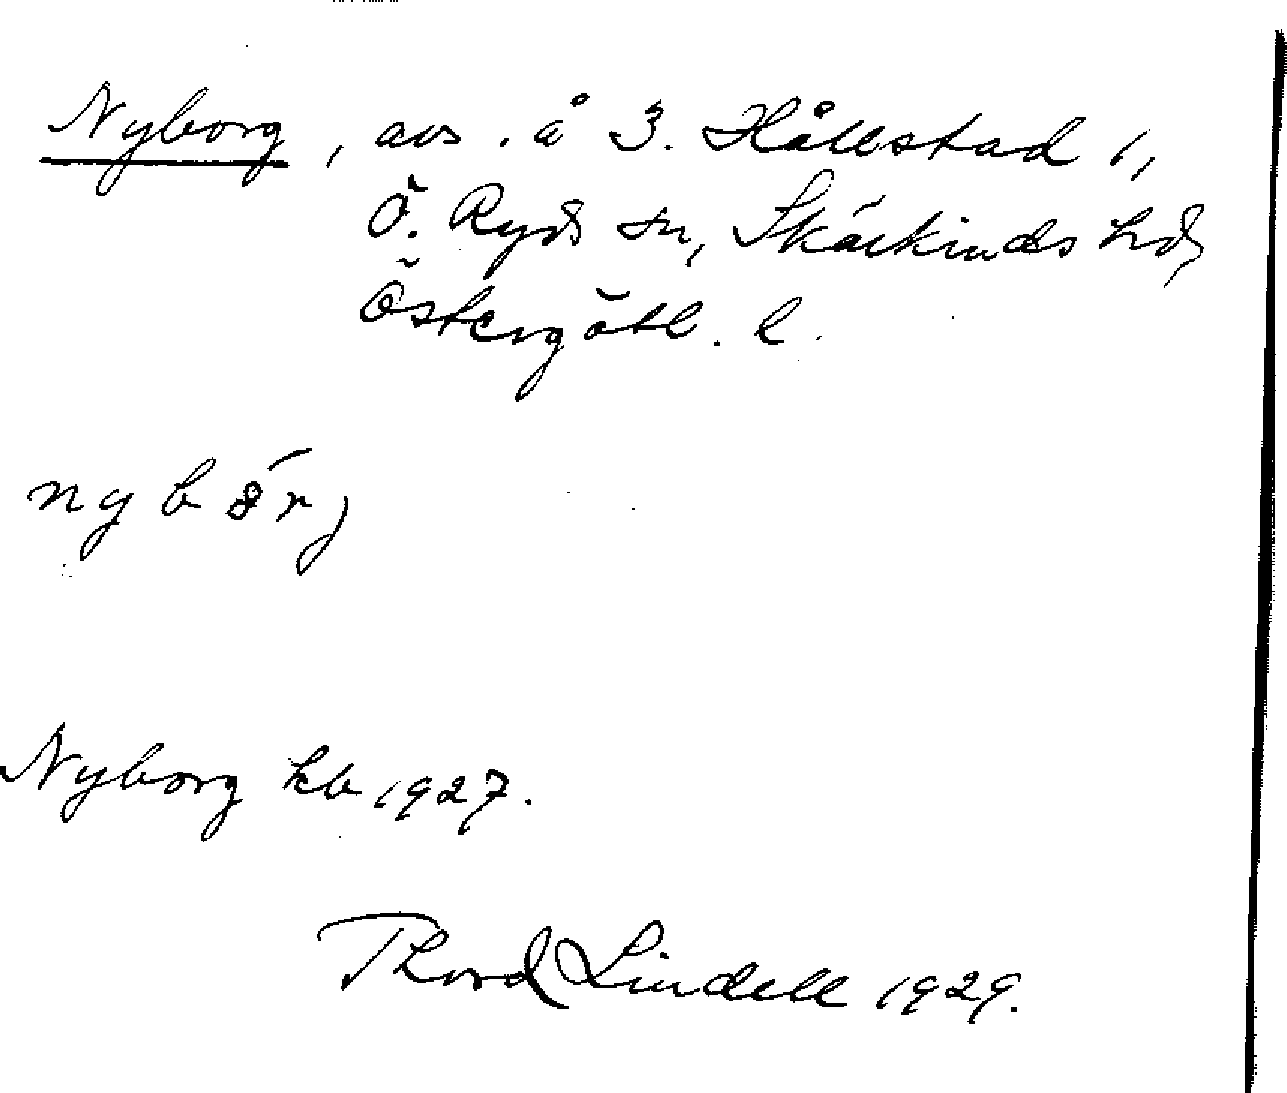 Nyborg, avs. å 3. Hållstad 1,
Ö. Ryds sn, Skärkinds hd,
Östergötl. l.
nybórj
Nyborg kb 1927.
Thord Lindell 1929.